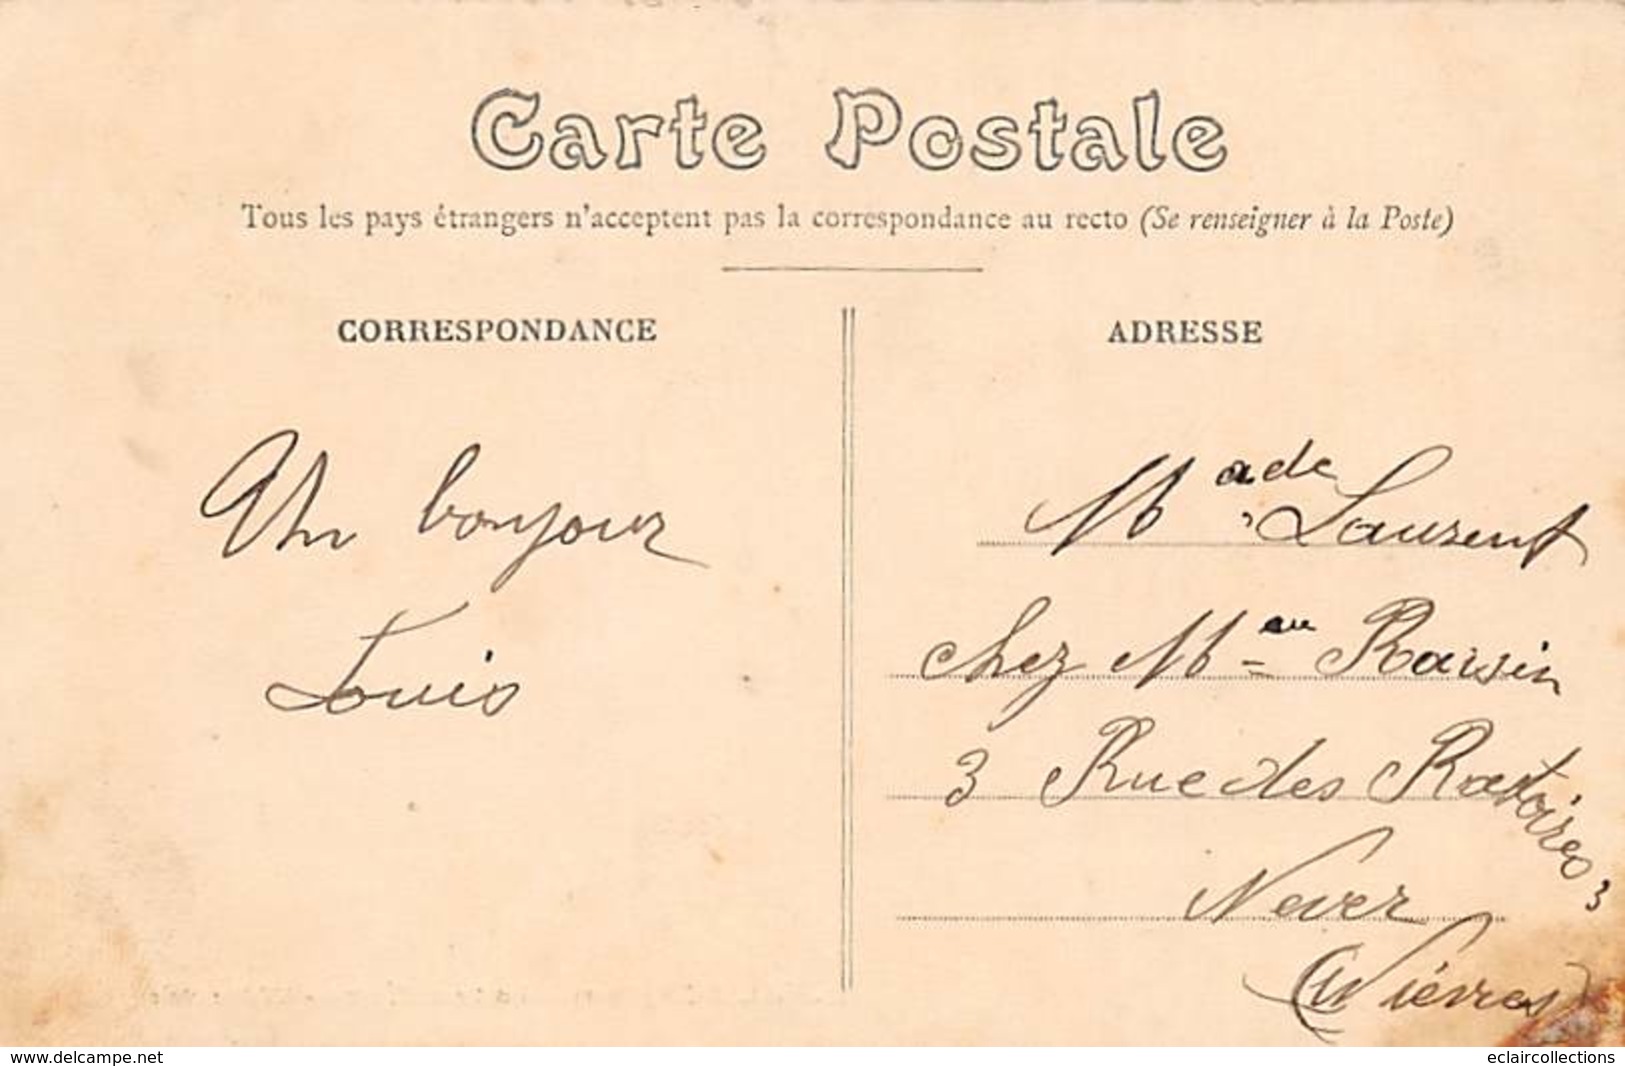 Carte Postale
Tous les pays étrangers n'acceptent pas la correspondance au recto (Se renseigner à la Poste)
CORRESPONDANCE
Un bonjour
Louis
ADRESSE
Made Laurent
chez Mme Raisin
3 Rue des Ratoires 3
Never
(Nièvres)
www.delcampe.net
eclaircollections